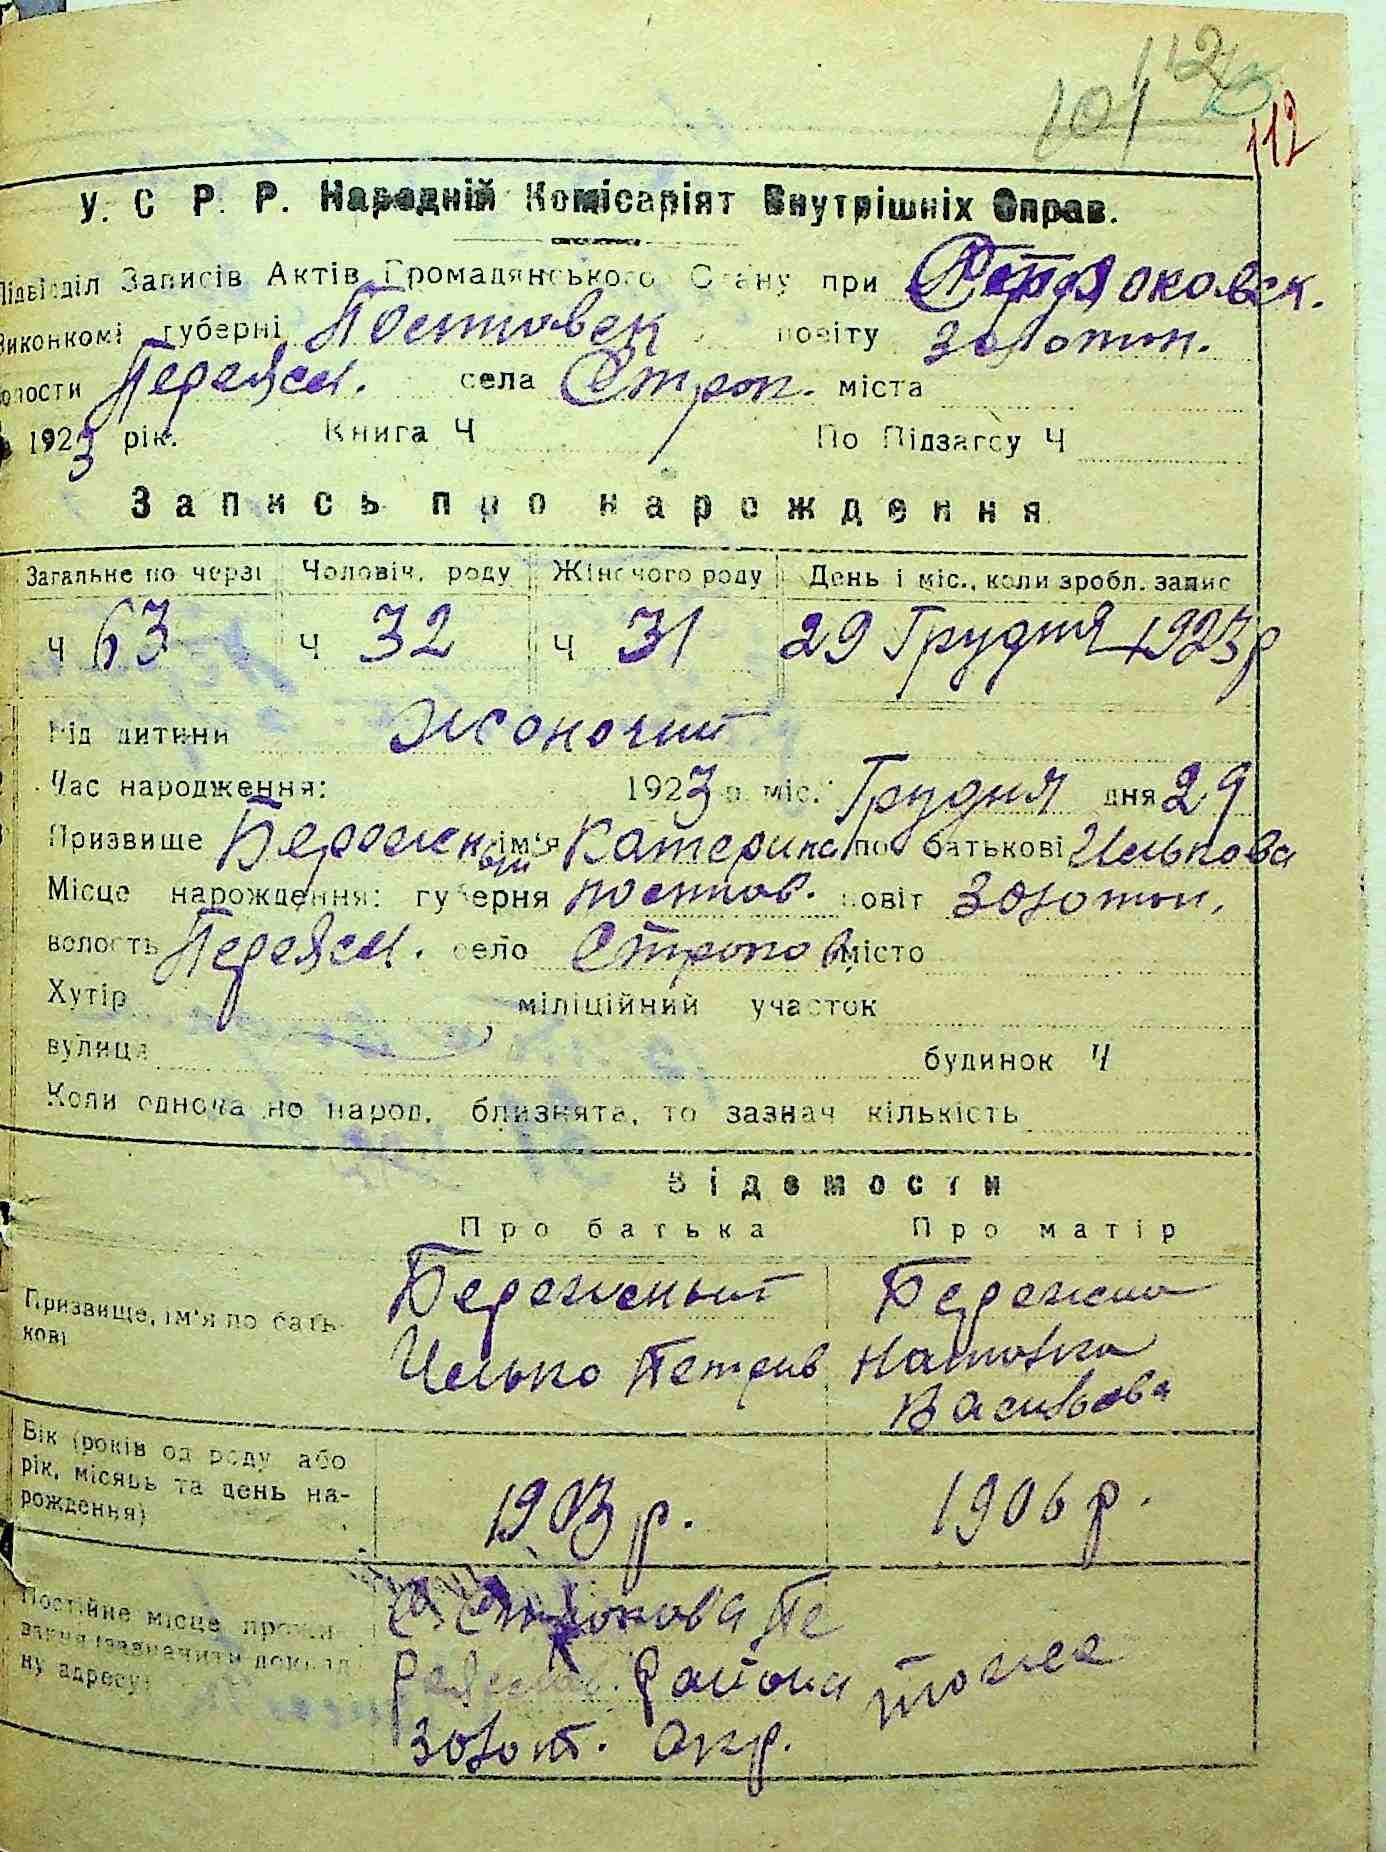 101 112
112
У. С Р. Р. Народній Комісаріят Внутрішніх Справ.
Підвідділ Записів Актів Громадянського Стану при
Виконкомі губерні Полтавськ повіту Золотон.
волости Переясл. села Строк. міста
1923 рік. Книга Ч По Підзагсу Ч
Запись про нарождення
Загальне по черзі Чоловіч. роду Жіночого роду День і міс., коли зробл. запис
Ч 63 Ч 32 Ч 31 29 Грудня 1923 р
Рід дитини Жоночий
Час народження: 1923 р. міс. Грудня дня 29
Призвище ім'я Катерина по батькові Илькова
Місце нарождення: губерня полтав. повіт Золотон.
волость Переясл. село Строков місто
Хутір міліційний участок
вулиця будинок Ч
Коли одноча но народ. близнята, то зазнач кількість
Відомости
Про батька Про матір
Призвище, ім'я по бать- Бережный Бережна
кові Илько Петрив Наталка
Васильова
Вік (років од роду або
рік, місяць та день на- 1903 р. 1906 р.
рождення)
Постійне місце прожи- Строкова Пе
вання (зазначити доклад
ну адресу) реяслав. Района тоже
Золот. Окр.